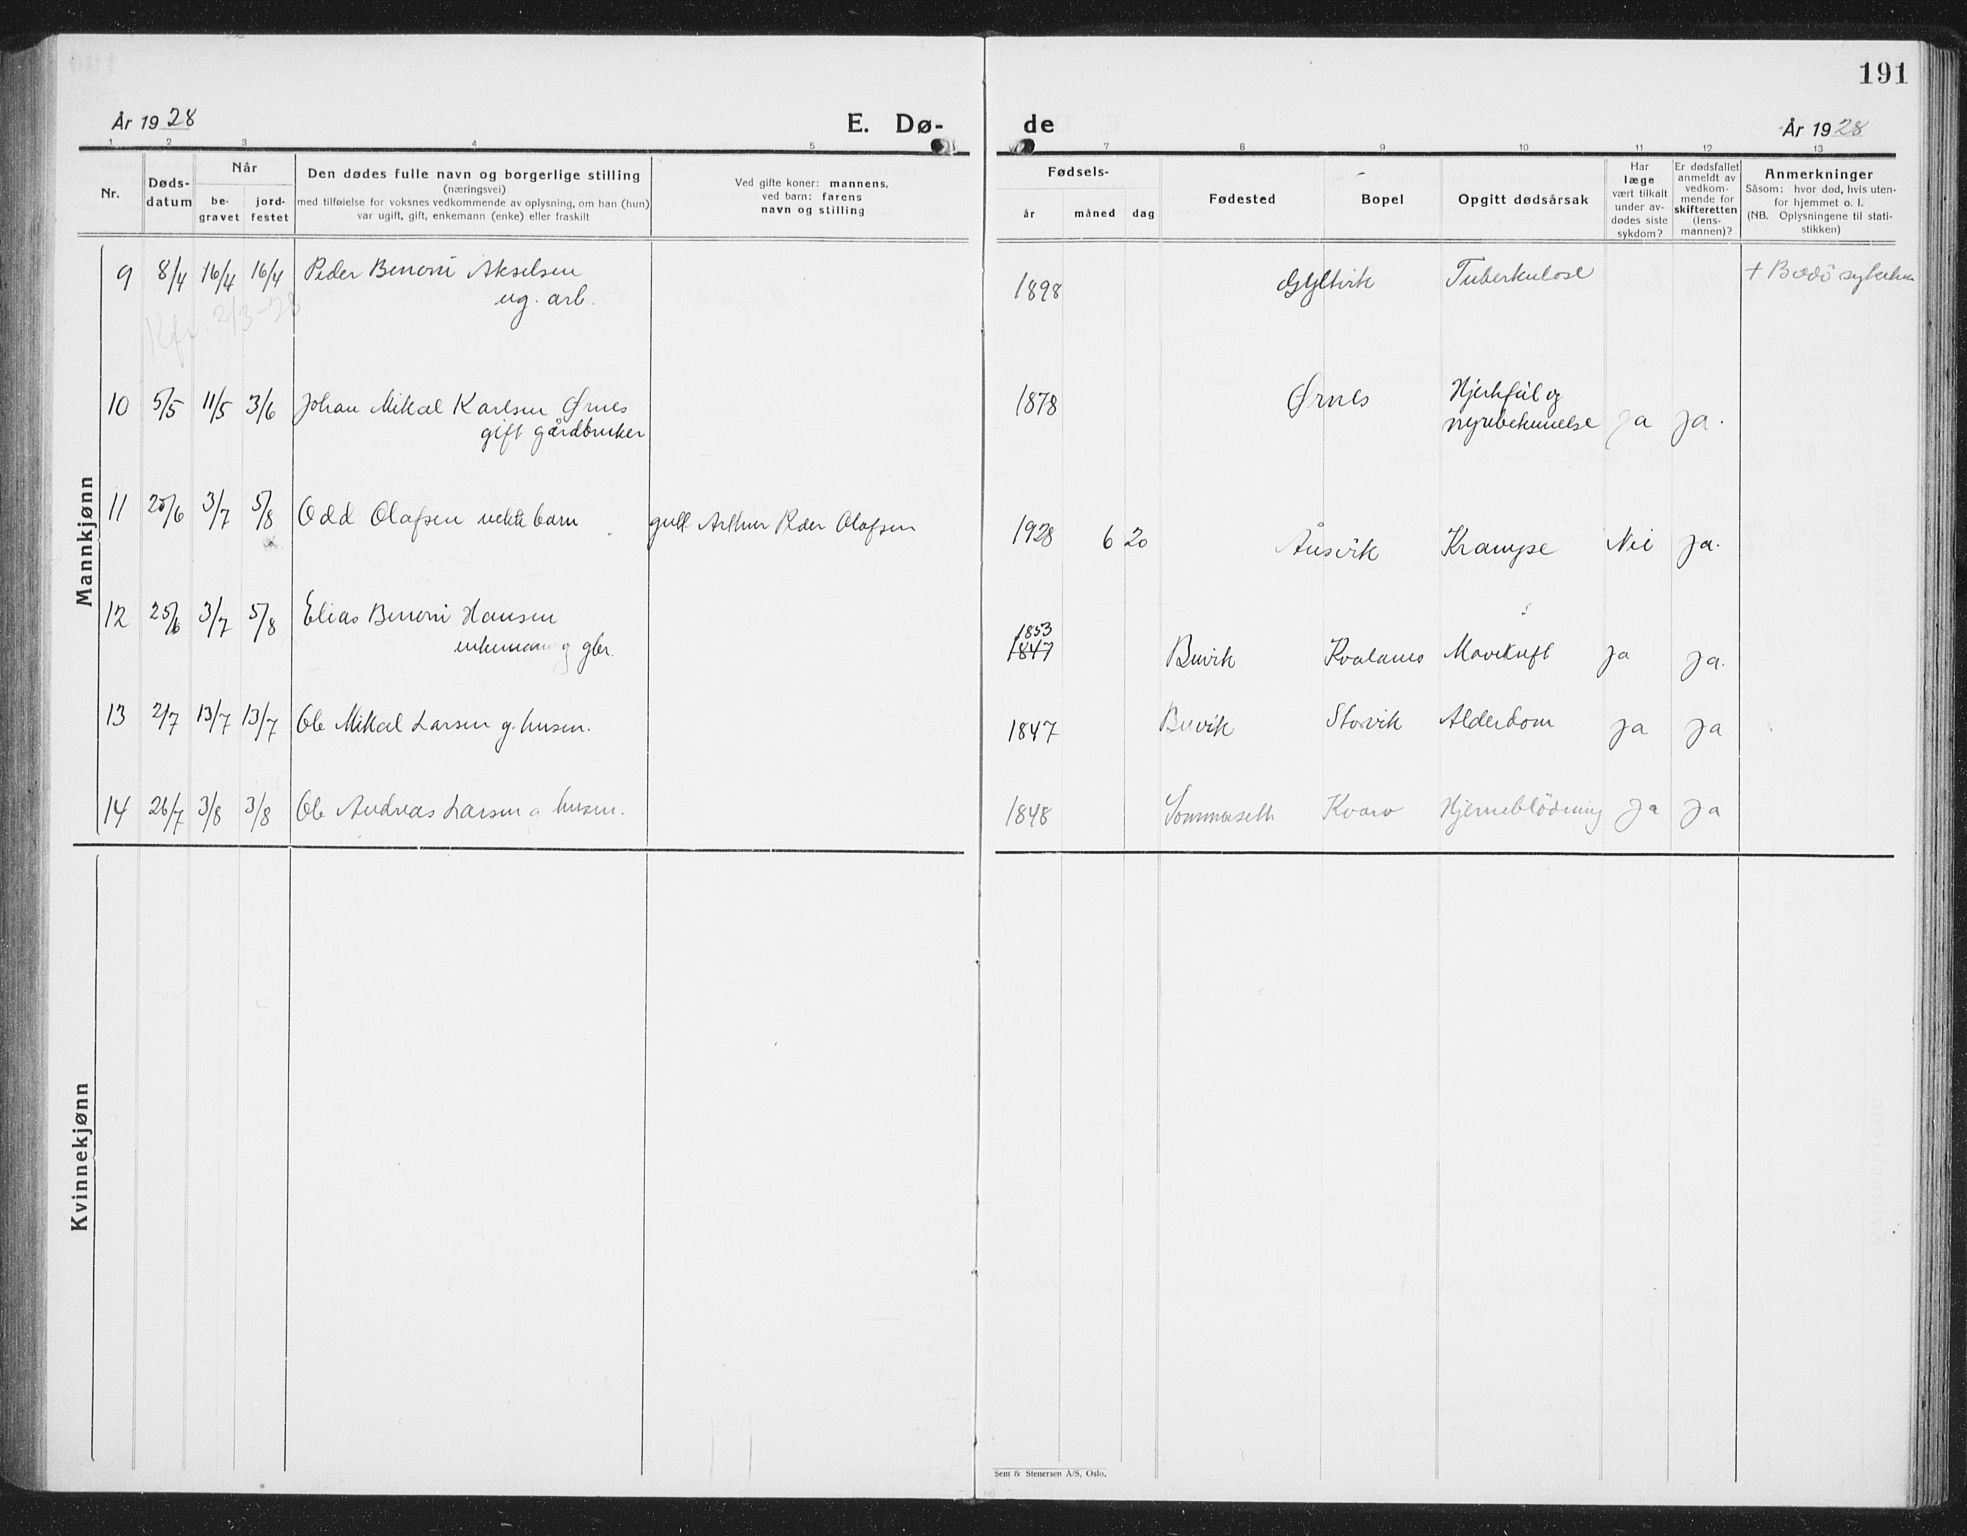 191
År 1928
E. Dø-
de
År 1928
1 2 3 4 5 7 8 9 10 11 12 13
Nr.
Døds-
datum
Når
be-
gravet
jord-
festet
Den dødes fulle navn og borgerlige stilling
(næringsvei)
med tilføielse for voksnes vedkommende av oplysning, om han (hun)
var ugift, gift, enkemann (enke) eller fraskilt
Ved gifte koner: mannens,
ved barn: farens
navn og stilling
Fødsels-
år måned dag
Fødested
Bopel
Opgitt dødsårsak
Har
læge
vært tilkalt
under av-
dødes siste
sykdom?
Er dødsfallet
anmeldt av
vedkom-
mende for
skifteretten
(lens-
mannen)?
Anmerkninger
Såsom: hvor død, hvis uten-
for hjemmet o. l.
(NB. Oplysningene til stati-
stikken)
Mannkjønn
9 8/4 16/4 16/4 Peder Benoni Akselsen 1898 Gyltvik Tuberkulose + Bodö
ug. arb.
2/3-28
10 5/5 11/5 3/6 Johan Mikal Karlsen Ørnes 1878 Ørnes Hjertefeil og
gift gårdbruker nyrebetennelse ja ja.
11 20/6 3/7 5/8 Odd Olafsen ekte barn gift Arthur Peder Olafsen 1928 6 20 Åsvik Krampe Nei ja.
12 25/6 3/7 5/8 Elias Benoni Hansen 1853
enkemann g gbr. 1847 Buvik Kvalanes Mavekreft ja ja.
13 2/7 13/7 13/7 Ole Mikal Larsen g. husm. 1847 Buvik Storvik Alderdom ja ja
14 26/7 3/8 3/8 Ole Andreas Larsen g husm. 1848 Sommerseth Kvarv Hjerneblödning ja ja
Kvinnekjønn
Sem & Stenersen A/S, Oslo.